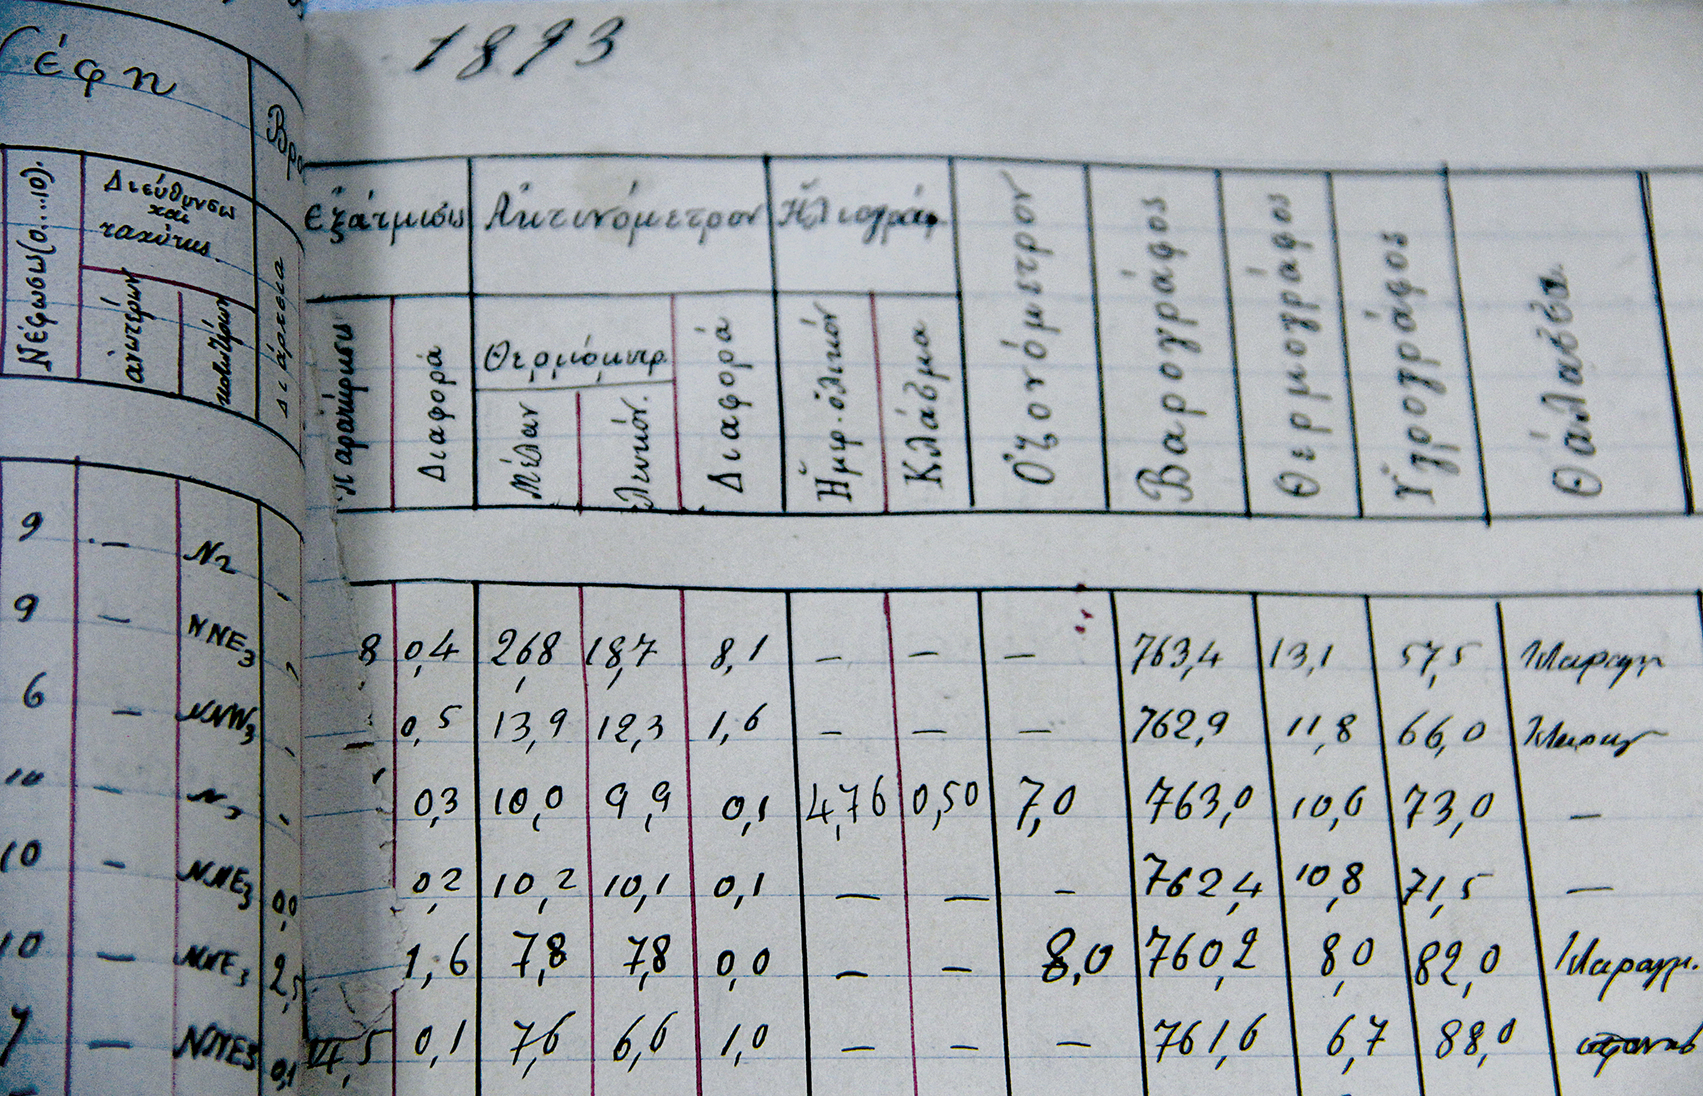 1893
Νέφη
Βρο
Νέφωσις (0....10).
Διεύθυνσις
και
ταχύτης.
ανωτέρων
κατωτέρων
Διάρκεια
Εξάτμισις
Ακτινόμετρον
Ἡλιογράφ.
Ὀζονόμετρον
Βαρογράφος
Θερμογράφος
Ὑγρογράφος
Θάλασσα
Παρατήρησις
Διαφορά
Θερμόμετρ.
Μέλαν
Λευκόν.
Διαφορά
Ἡμφ. ὁλικόν
Κλάσμα
9 — N2
9 — NNE3 8 0,4 26,8 18,7 8,1 — — — 763,4 13,1 57,5
6 — NNW3 — 0,5 13,9 12,3 1,6 — — — 762,9 11,8 66,0
10 — 0,3 10,0 9,9 0,1 4,76 0,50 7,0 763,0 10,6 73,0 —
10 — NNE3 0,0 0,2 10,2 10,1 0,1 — — — 762,4 10,8 71,5 —
10 — NNE3 2,5 1,6 7,8 7,8 0,0 — — 8,0 760,2 8,0 82,0
7 — NNE3 0,1 0,1 7,6 6,6 1,0 — — — 761,6 6,7 88,0